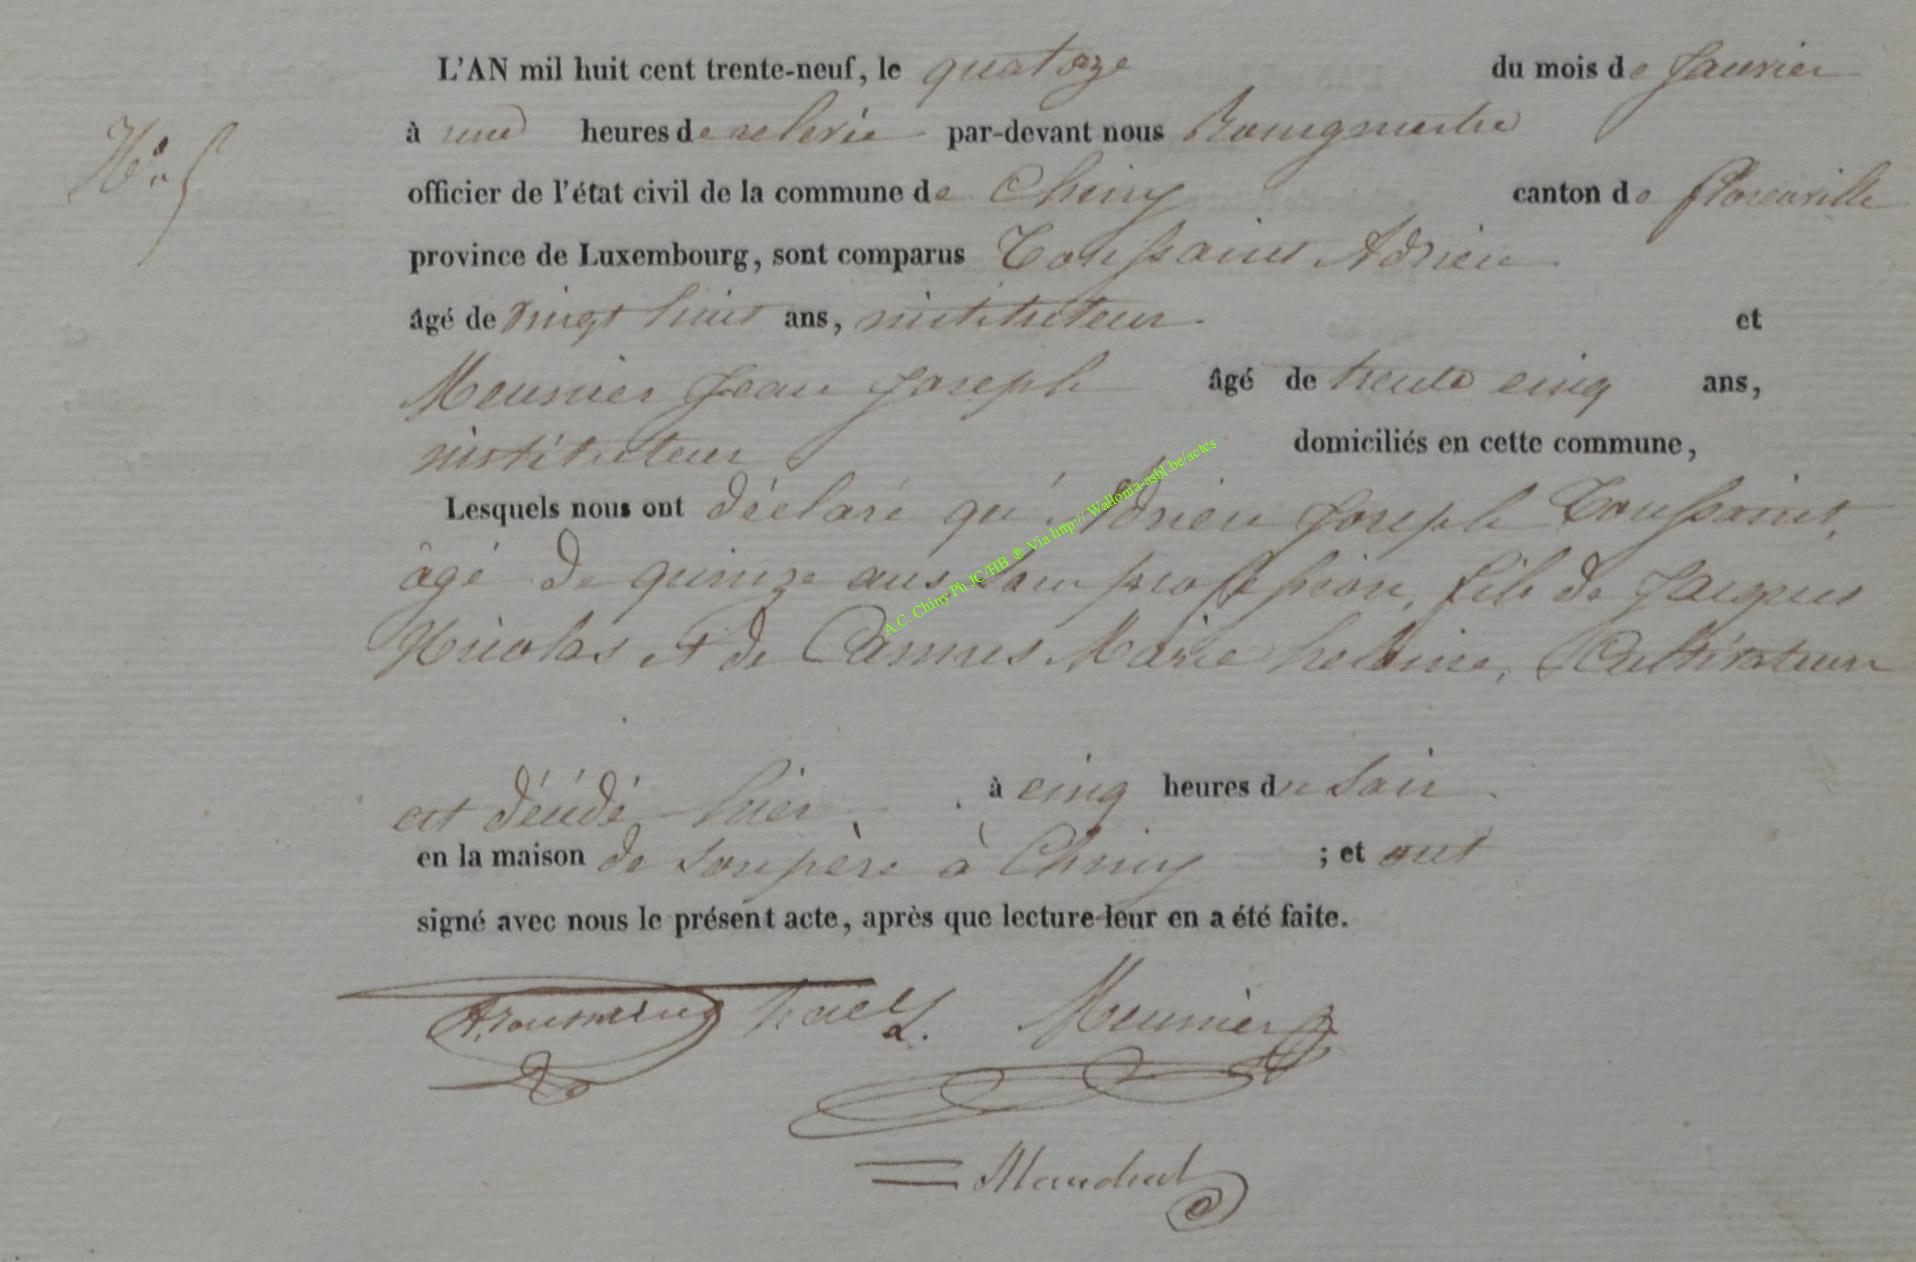 L'AN mil huit cent trente-neuf, le quatorze du mois de Janvier
N.° 5
à une heures de relevée par-devant nous Bourgmestre
officier de l'état civil de la commune de Chiny canton de florenville
province de Luxembourg, sont comparus Toussaint Adrien
âgé de vingt huit ans, instituteur et
Meunier Jean Joseph âgé de trente cinq ans,
instituteur domiciliés en cette commune,
Lesquels nous ont déclaré qu' Adrien Joseph Toussaint,
âgé de quinze ans sans profession, fils de Jacques
Nicolas et de Marie Cultivateurs
est décédé hier à cinq heures du soir
en la maison de son père à Chiny ; et ont
signé avec nous le présent acte, après que lecture leur en a été faite.
A. Toussaint Meunier
A.C. Chiny Ph JC/HB ® Via http:// Wallonia-asbl.be/actes